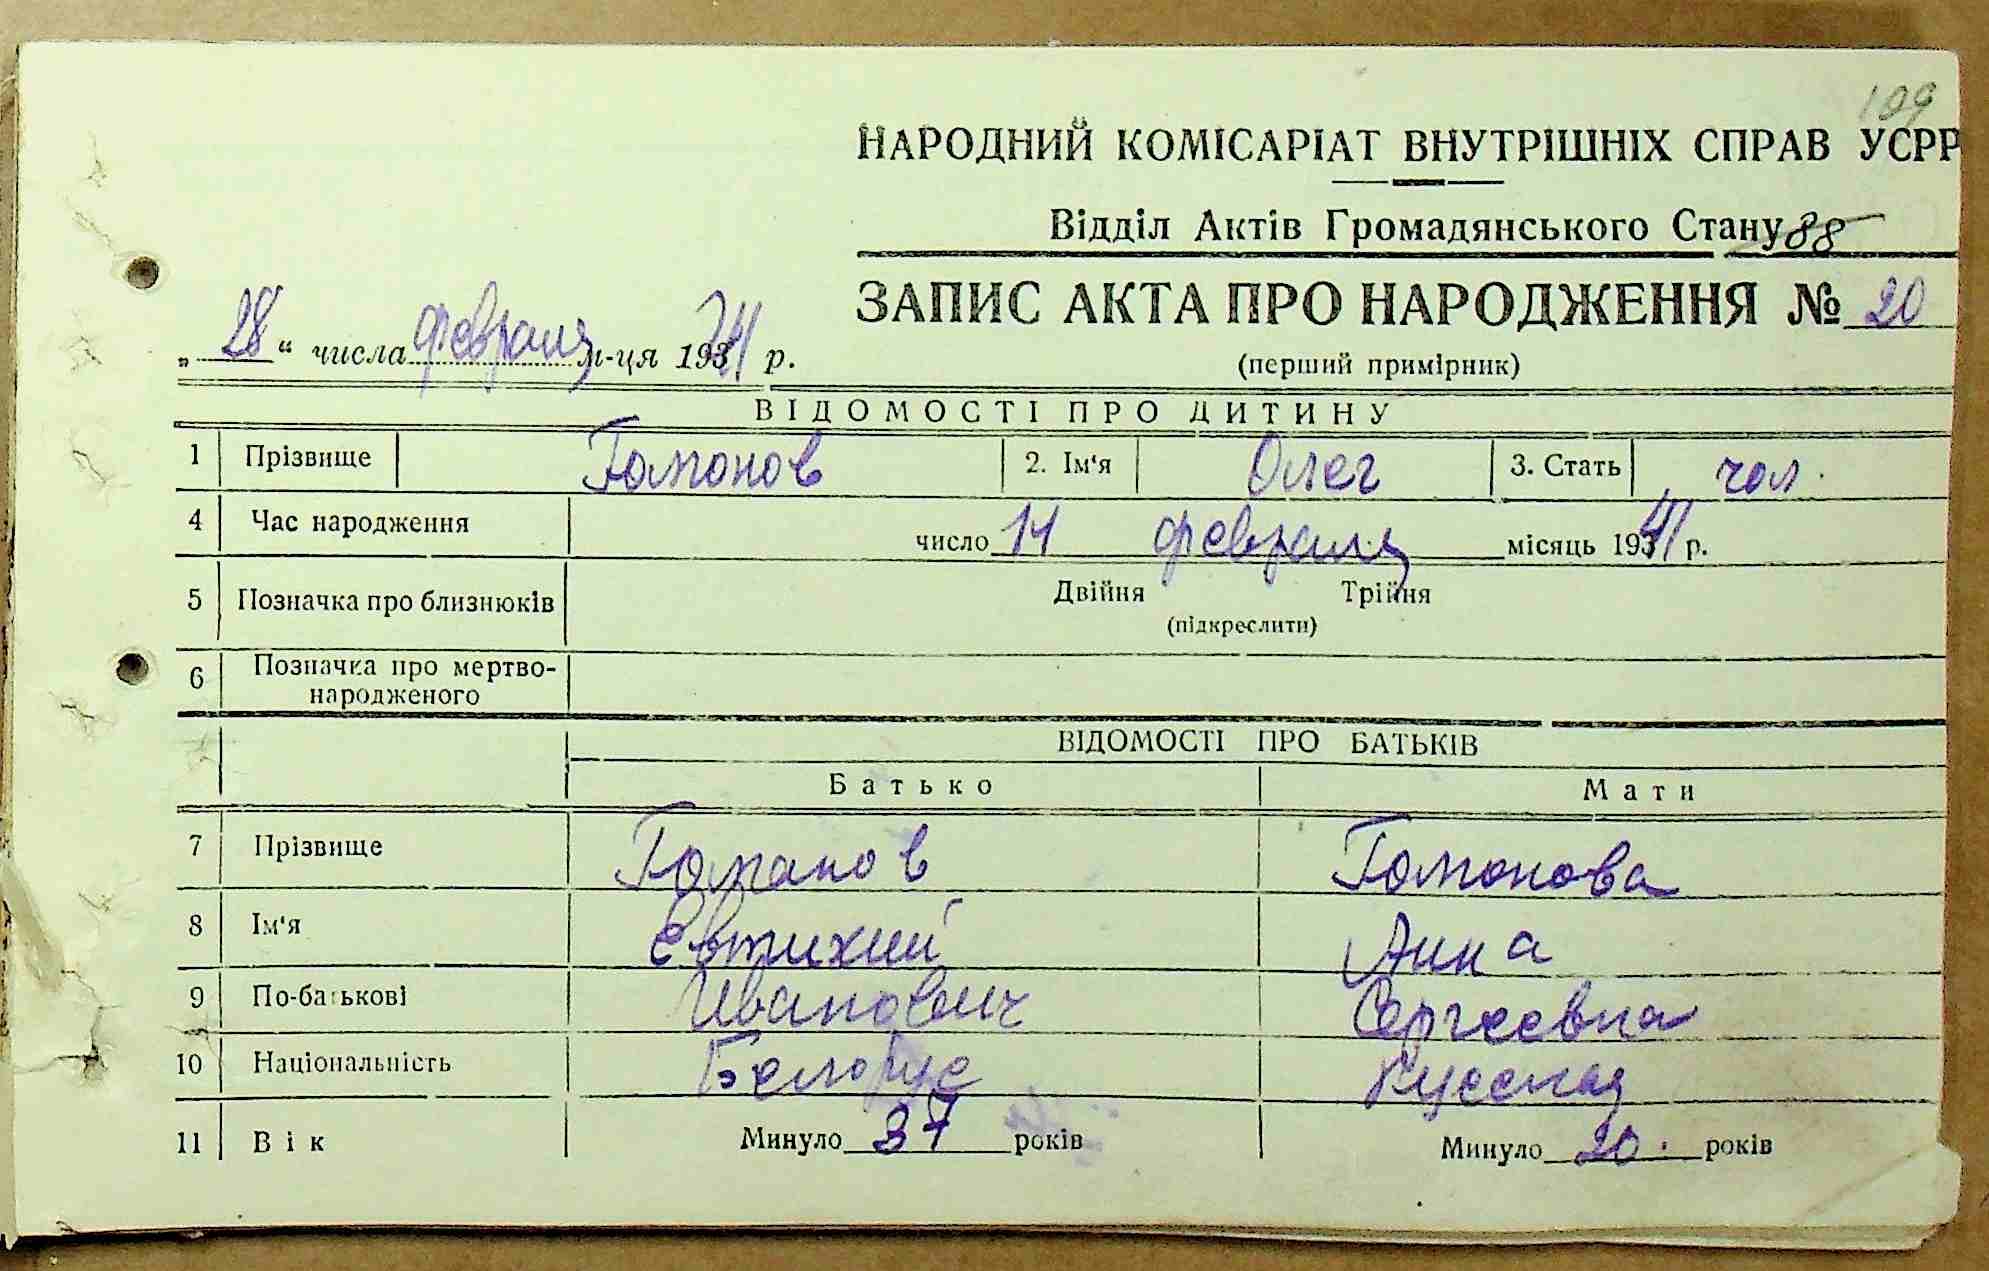 109
НАРОДНИЙ КОМІСАРІАТ ВНУТРІШНІХ СПРАВ УСРР
Відділ Актів Громадянського Стану 88
ЗАПИС АКТА ПРО НАРОДЖЕННЯ № 20
„28“ числа февраля м-ця 1941 р.
(перший примірник)
ВІДОМОСТІ ПРО ДИТИНУ
1 Прізвище Гомонов 2. Ім'я Олег 3. Стать чол.
4 Час народження число 14 февраля місяць 1941 р.
5 Позначка про близнюків Двійня Трійня
(підкреслити)
6 Позначка про мертво-
народженого
ВІДОМОСТІ ПРО БАТЬКІВ
Батько Мати
7 Прізвище Гоманов Гомонова
8 Ім'я Евтихий Анна
9 По-батькові Иванович Сергеевна
10 Національність Белорус Русская
11 Вік Минуло 37 років Минуло 20. років